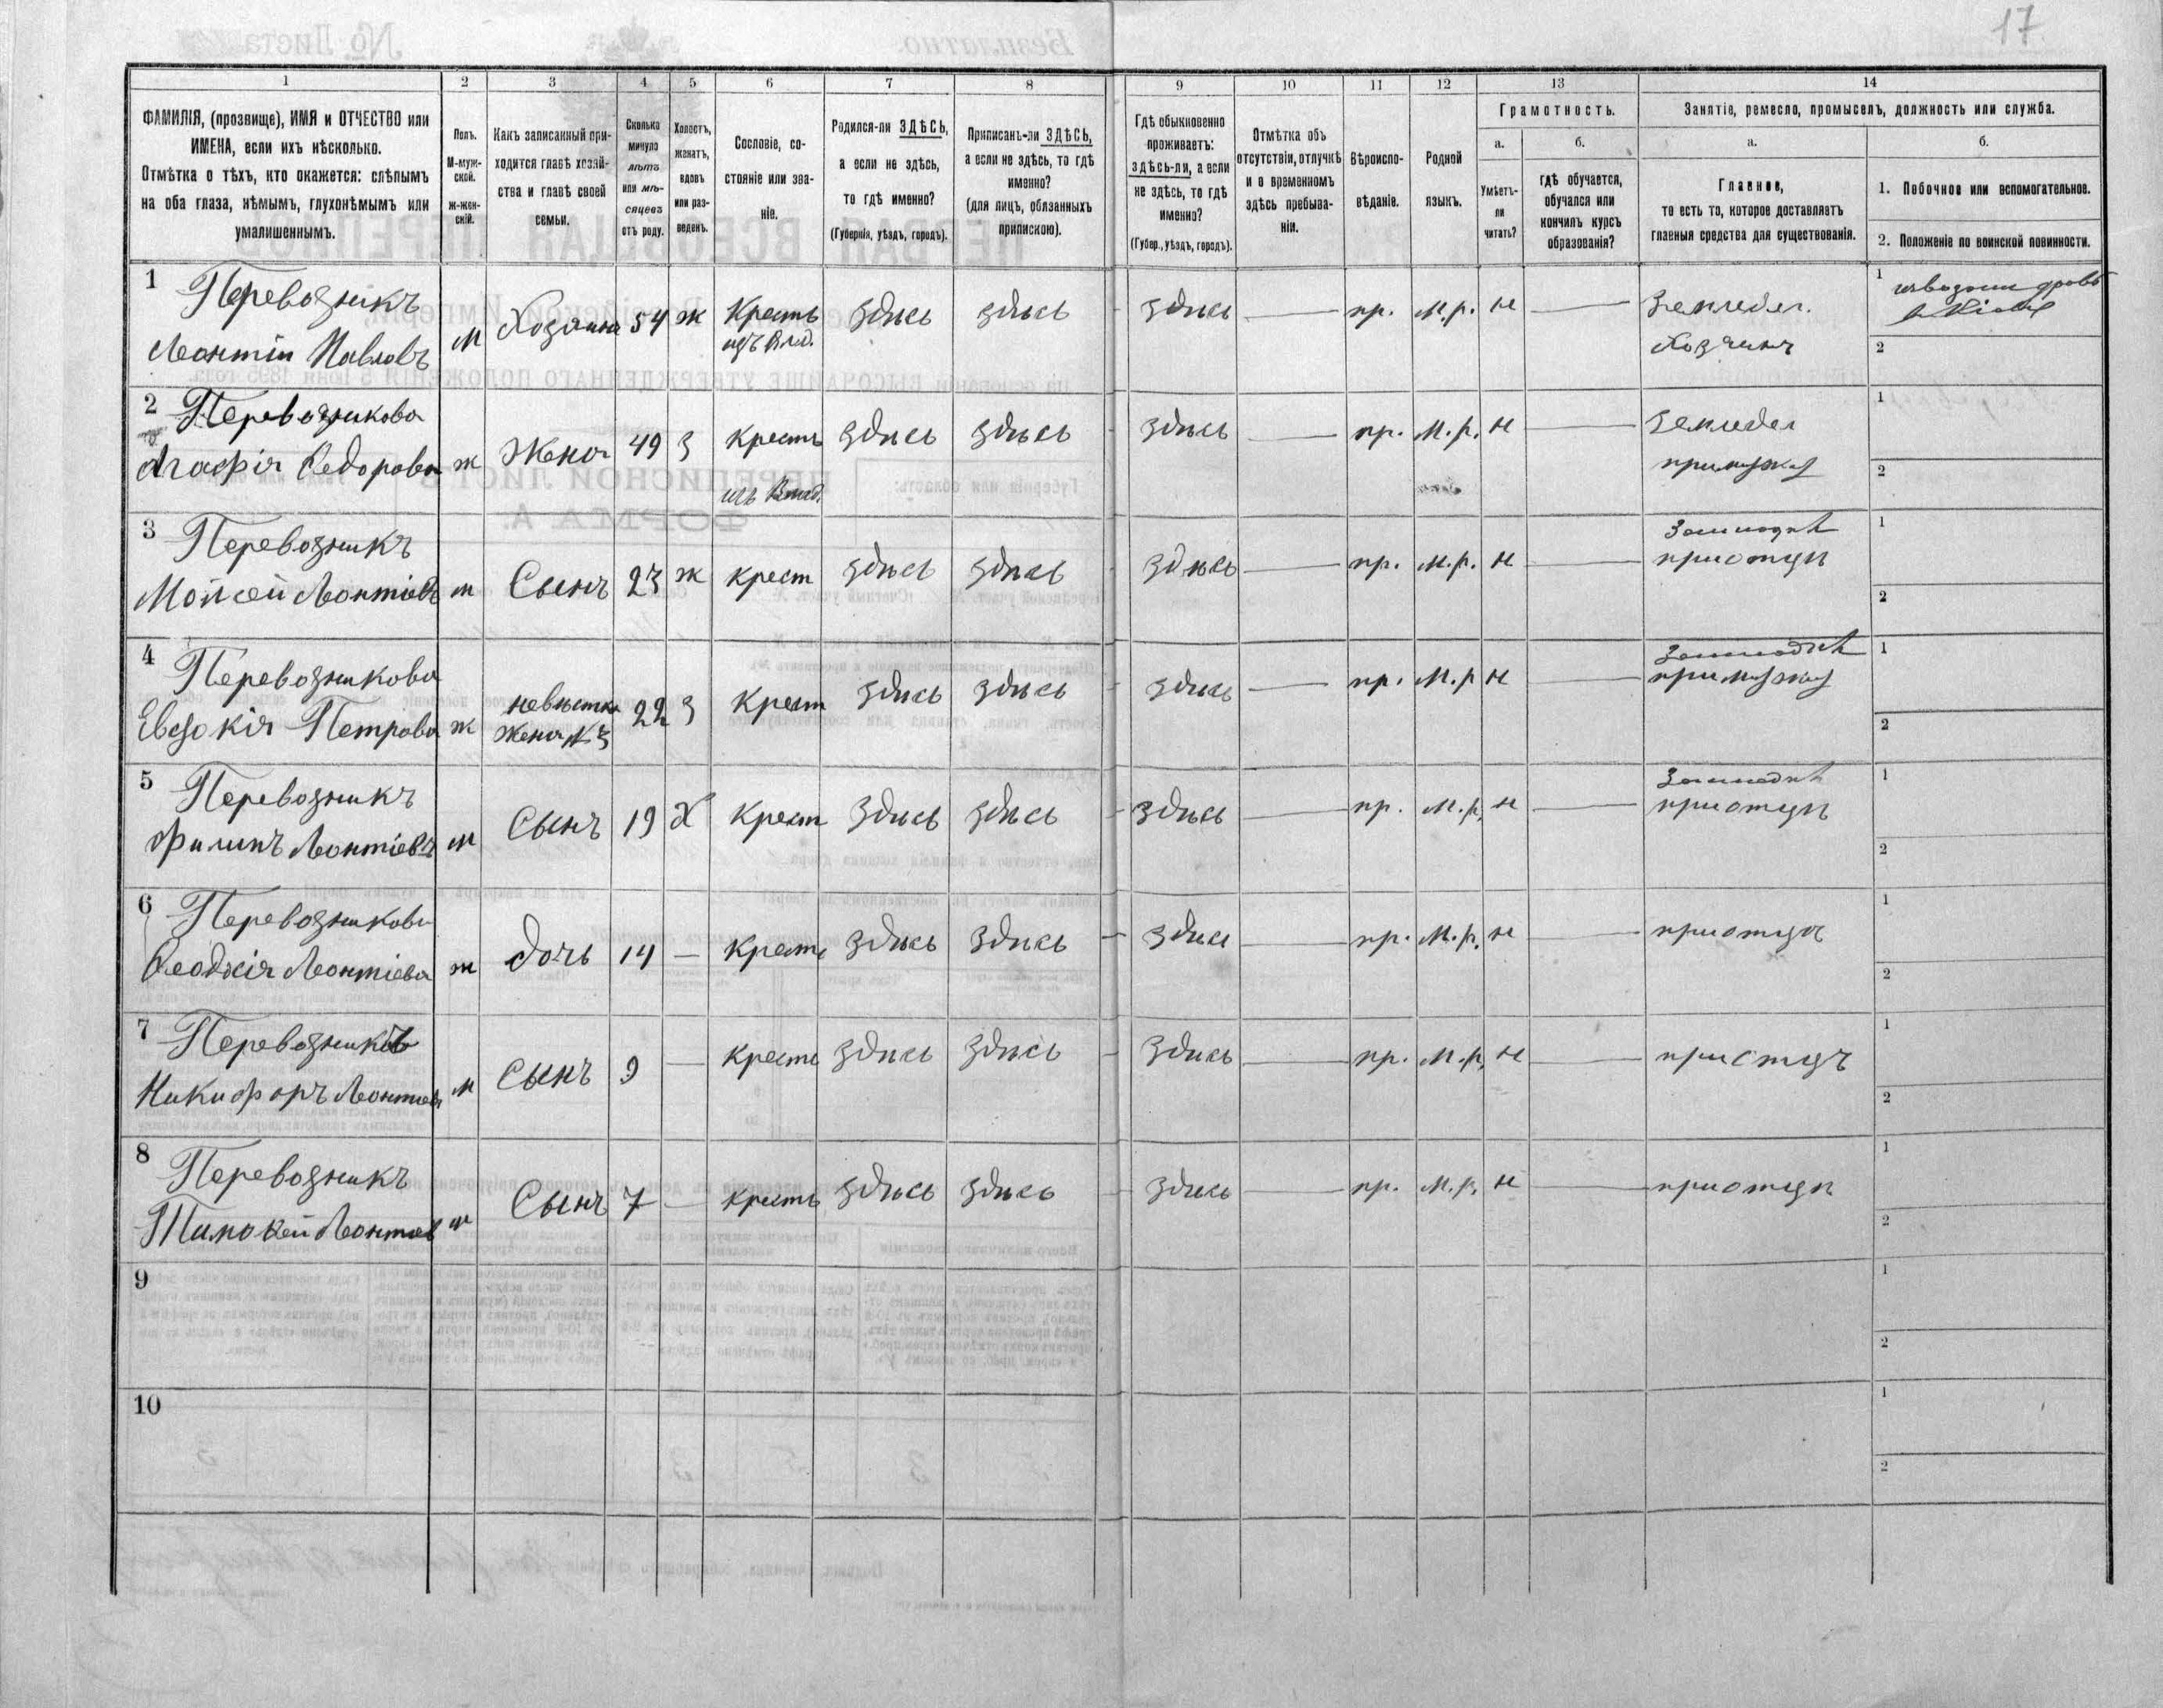 17
1 2 3 4 5 6 7 8 9 10 11 12 13 14
ФАМИЛІЯ, (прозвище), ИМЯ и ОТЧЕСТВО или
ИМЕНА, если ихъ нѣсколько.
Отмѣтка о тѣхъ, кто окажется: слѣпымъ
на оба глаза, нѣмымъ, глухонѣмымъ или
умалишеннымъ.
Полъ.
М-муж-
ской.
ж-жен-
скій.
Какъ записанный при-
ходится главѣ хозяй-
ства и главѣ своей
семьи.
Сколько
минуло
лѣтъ
или мѣ-
сяцевъ
отъ роду.
Холостъ,
женатъ,
вдовъ
или раз-
веденъ.
Сословіе, со-
стояніе или зва-
ніе.
Родился-ли ЗДѢСЬ,
а если не здѣсь,
то гдѣ именно?
(Губернія, уѣздъ, городъ).
Приписанъ-ли ЗДѢСЬ,
а если не здѣсь, то гдѣ
именно?
(для лицъ, обязанныхъ
припискою).
Гдѣ обыкновенно
проживаетъ:
здѣсь-ли, а если
не здѣсь, то гдѣ
именно?
(Губер., уѣздъ, городъ).
Отмѣтка объ
отсутствіи, отлучкѣ
и о временномъ
здѣсь пребыва-
ніи.
Вѣроиспо-
вѣданіе.
Родной
языкъ.
Грамотность.
а. б.
Умѣетъ-
ли
читать?
гдѣ обучается,
обучался или
кончилъ курсъ
образованія?
Занятіе, ремесло, промыселъ, должность или служба.
а. б.
Главное,
то есть то, которое доставляетъ
главныя средства для существованія.
1. Побочное или вспомогательное.
2. Положеніе по воинской повинности.
1 Перевозникъ
Леонтій Павловъ м Хозяинъ 54 ж Крестъ здѣсь здѣсь здѣсь — пр. М.р. н — Земледел. 1 извозом дровъ
изъ Влад. Хозяинъ
2
2 Перевозникова
Агафія Федорова ж Жена 49 з кресть здѣсь здѣсь здѣсь — пр. М.р. н — Земледел 1
изъ Влад. при мужу 2
3 Перевозникъ
Мойсей Леонтіевъ м Сынъ 23 ж крест здѣсь здѣсь здѣсь — пр. М.р. н — при отцѣ 1
2
4 Перевозникова
Евдокія Петрова ж невѣстка 22 з Крест здѣсь здѣсь здѣсь — пр. М.р н — при мужу 1
жена №3 2
5 Перевозникъ
Филипъ Леонтіевъ м Сынъ 19 х Крест здѣсь здѣсь здѣсь — пр. М.р. н — при отцѣ 1
2
6 Перевозникова
Феодосія Леонтіева ж дочь 14 — Кресть здѣсь здѣсь здѣсь — пр. М.р. н — при отцѣ 1
2
7 Перевозникъ
Никифоръ Леонтіев м Сынъ 9 — Кресть здѣсь здѣсь здѣсь — пр. М.р. н — при отцѣ 1
2
8 Перевозникъ
Тимофей Леонтіев м Сынъ 7 — кресть здѣсь здѣсь здѣсь — пр. М.р. н — при отцѣ 1
2
9 1
2
10 1
2